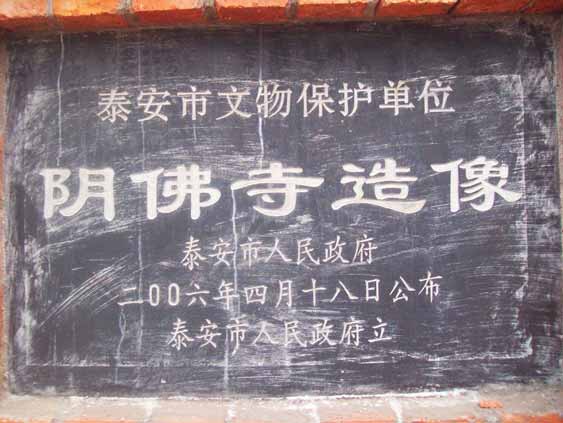 泰安市文物保护单位
阴佛寺造像
泰安市人民政府
二〇〇六年四月十八日公布
泰安市人民政府立